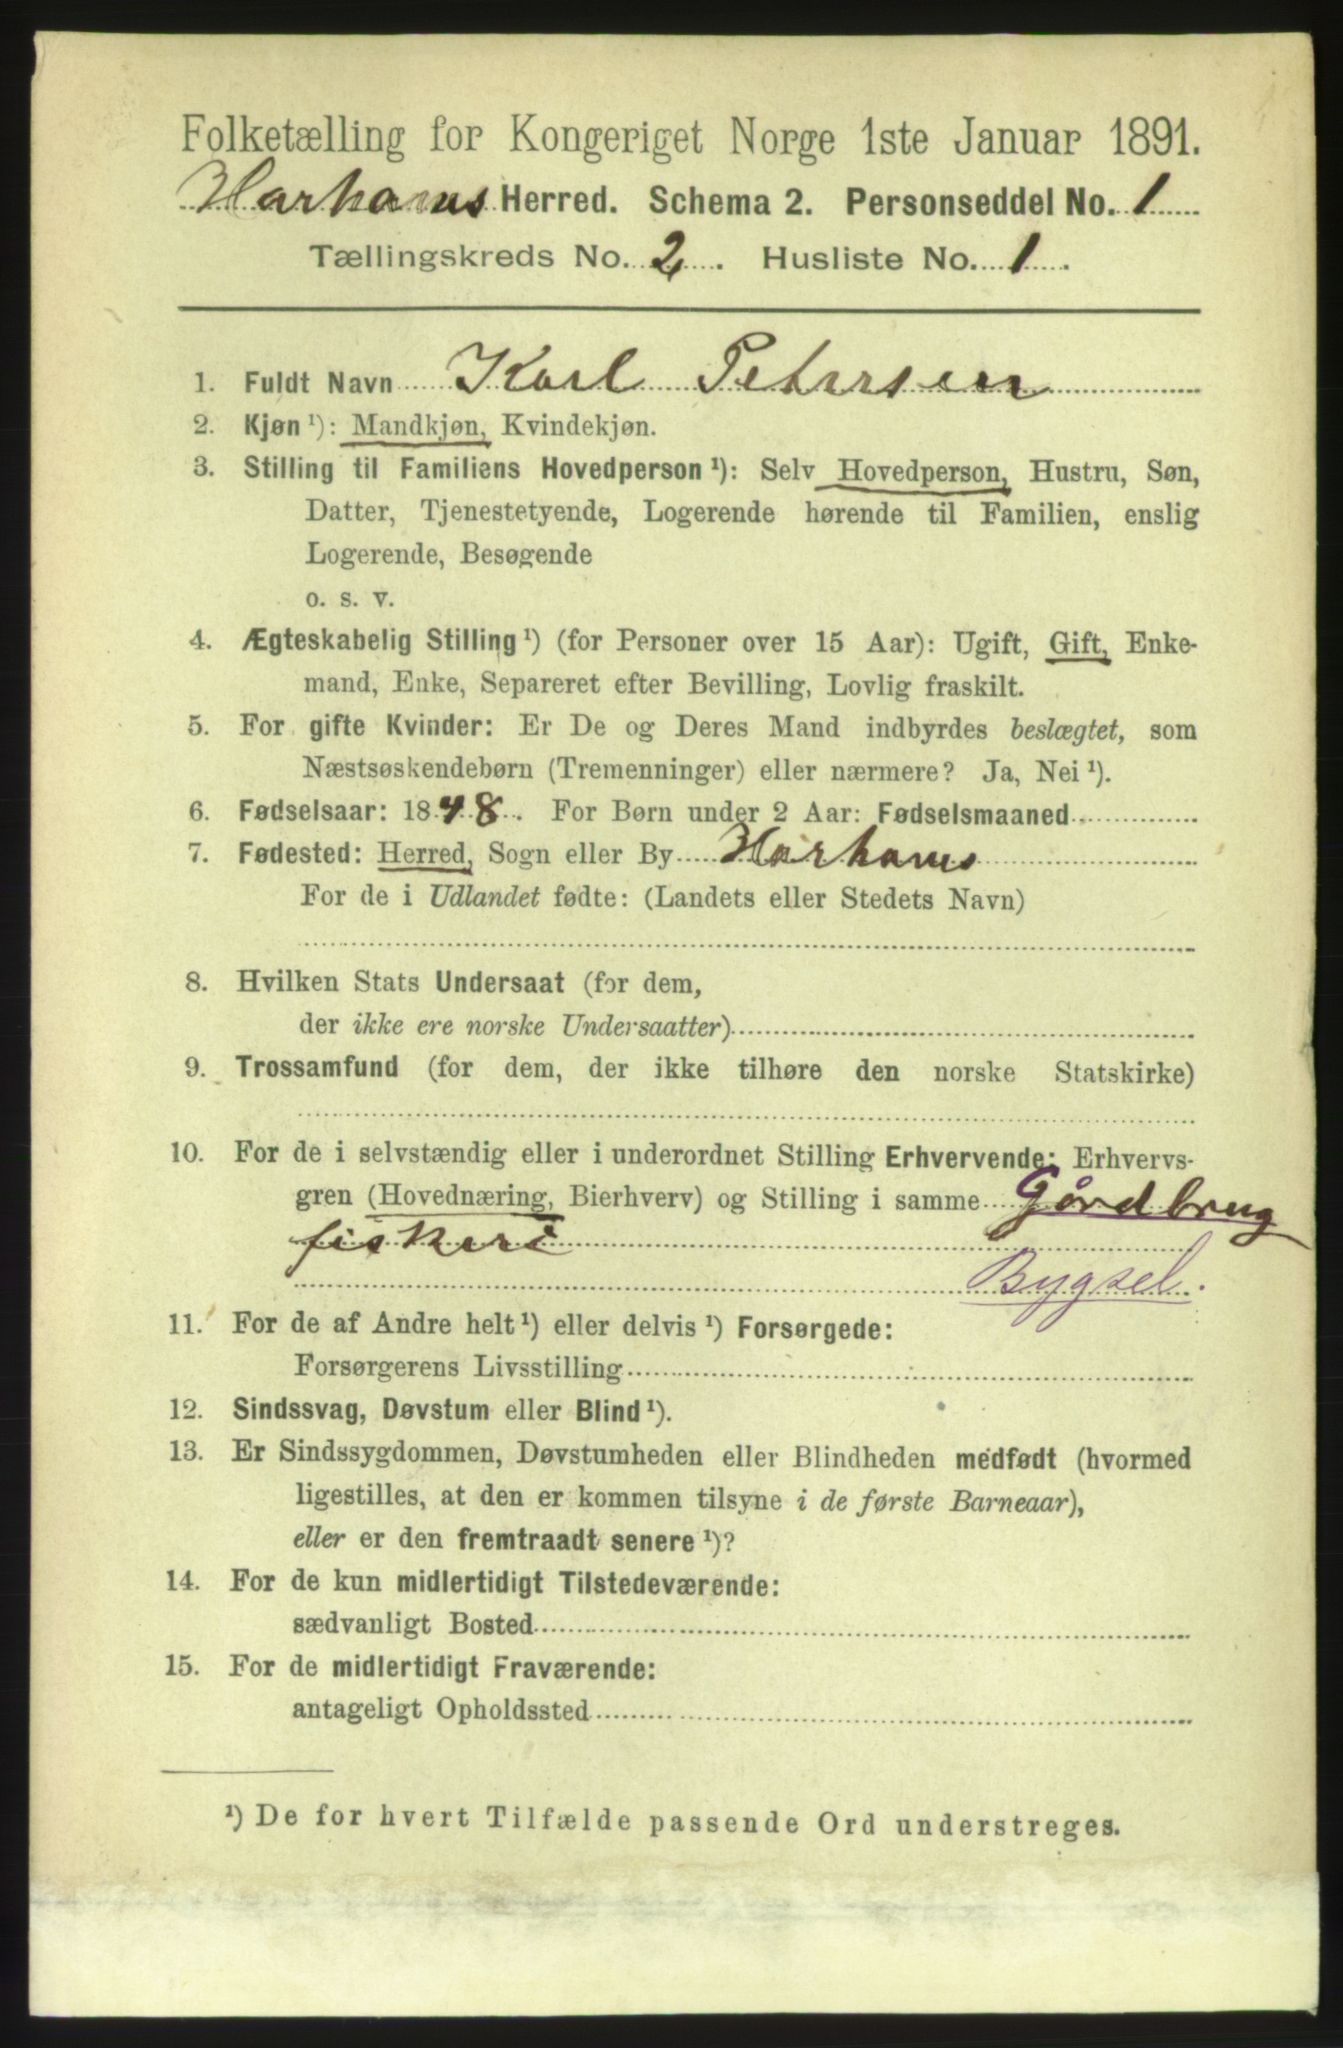 Folketælling for Kongeriget Norge 1ste Januar 1891.
Harhams Herred. Schema 2. Personseddel No. 1
Tællingskreds No. 2. Husliste No. 1.
1. Fuldt Navn Karl Petersen
2. Kjøn ¹): Mandkjøn, Kvindekjøn.
3. Stilling til Familiens Hovedperson ¹): Selv Hovedperson, Hustru, Søn,
Datter, Tjenestetyende, Logerende hørende til Familien, enslig
Logerende, Besøgende
o. s. v.
4. Ægteskabelig Stilling ¹) (for Personer over 15 Aar): Ugift, Gift, Enke-
mand, Enke, Separeret efter Bevilling, Lovlig fraskilt.
5. For gifte Kvinder: Er De og Deres Mand indbyrdes beslægtet, som
Næstsøskendebørn (Tremenninger) eller nærmere? Ja, Nei ¹).
6. Fødselsaar: 1848. For Børn under 2 Aar: Fødselsmaaned
7. Fødested: Herred, Sogn eller By Harhams
For de i Udlandet fødte: (Landets eller Stedets Navn)
8. Hvilken Stats Undersaat (for dem,
der ikke ere norske Undersaatter)
9. Trossamfund (for dem, der ikke tilhøre den norske Statskirke)
10. For de i selvstændig eller i underordnet Stilling Erhvervende: Erhvervs-
gren (Hovednæring, Bierhverv) og Stilling i samme Gårdbrug
fiskeri
Bygsel.
11. For de af Andre helt ¹) eller delvis ¹) Forsørgede:
Forsørgerens Livsstilling
12. Sindssvag, Døvstum eller Blind ¹).
13. Er Sindssygdommen, Døvstumheden eller Blindheden medfødt (hvormed
ligestilles, at den er kommen tilsyne i de første Barneaar),
eller er den fremtraadt senere ¹)?
14. For de kun midlertidigt Tilstedeværende:
sædvanligt Bosted
15. For de midlertidigt Fraværende:
antageligt Opholdssted
¹) De for hvert Tilfælde passende Ord understreges.